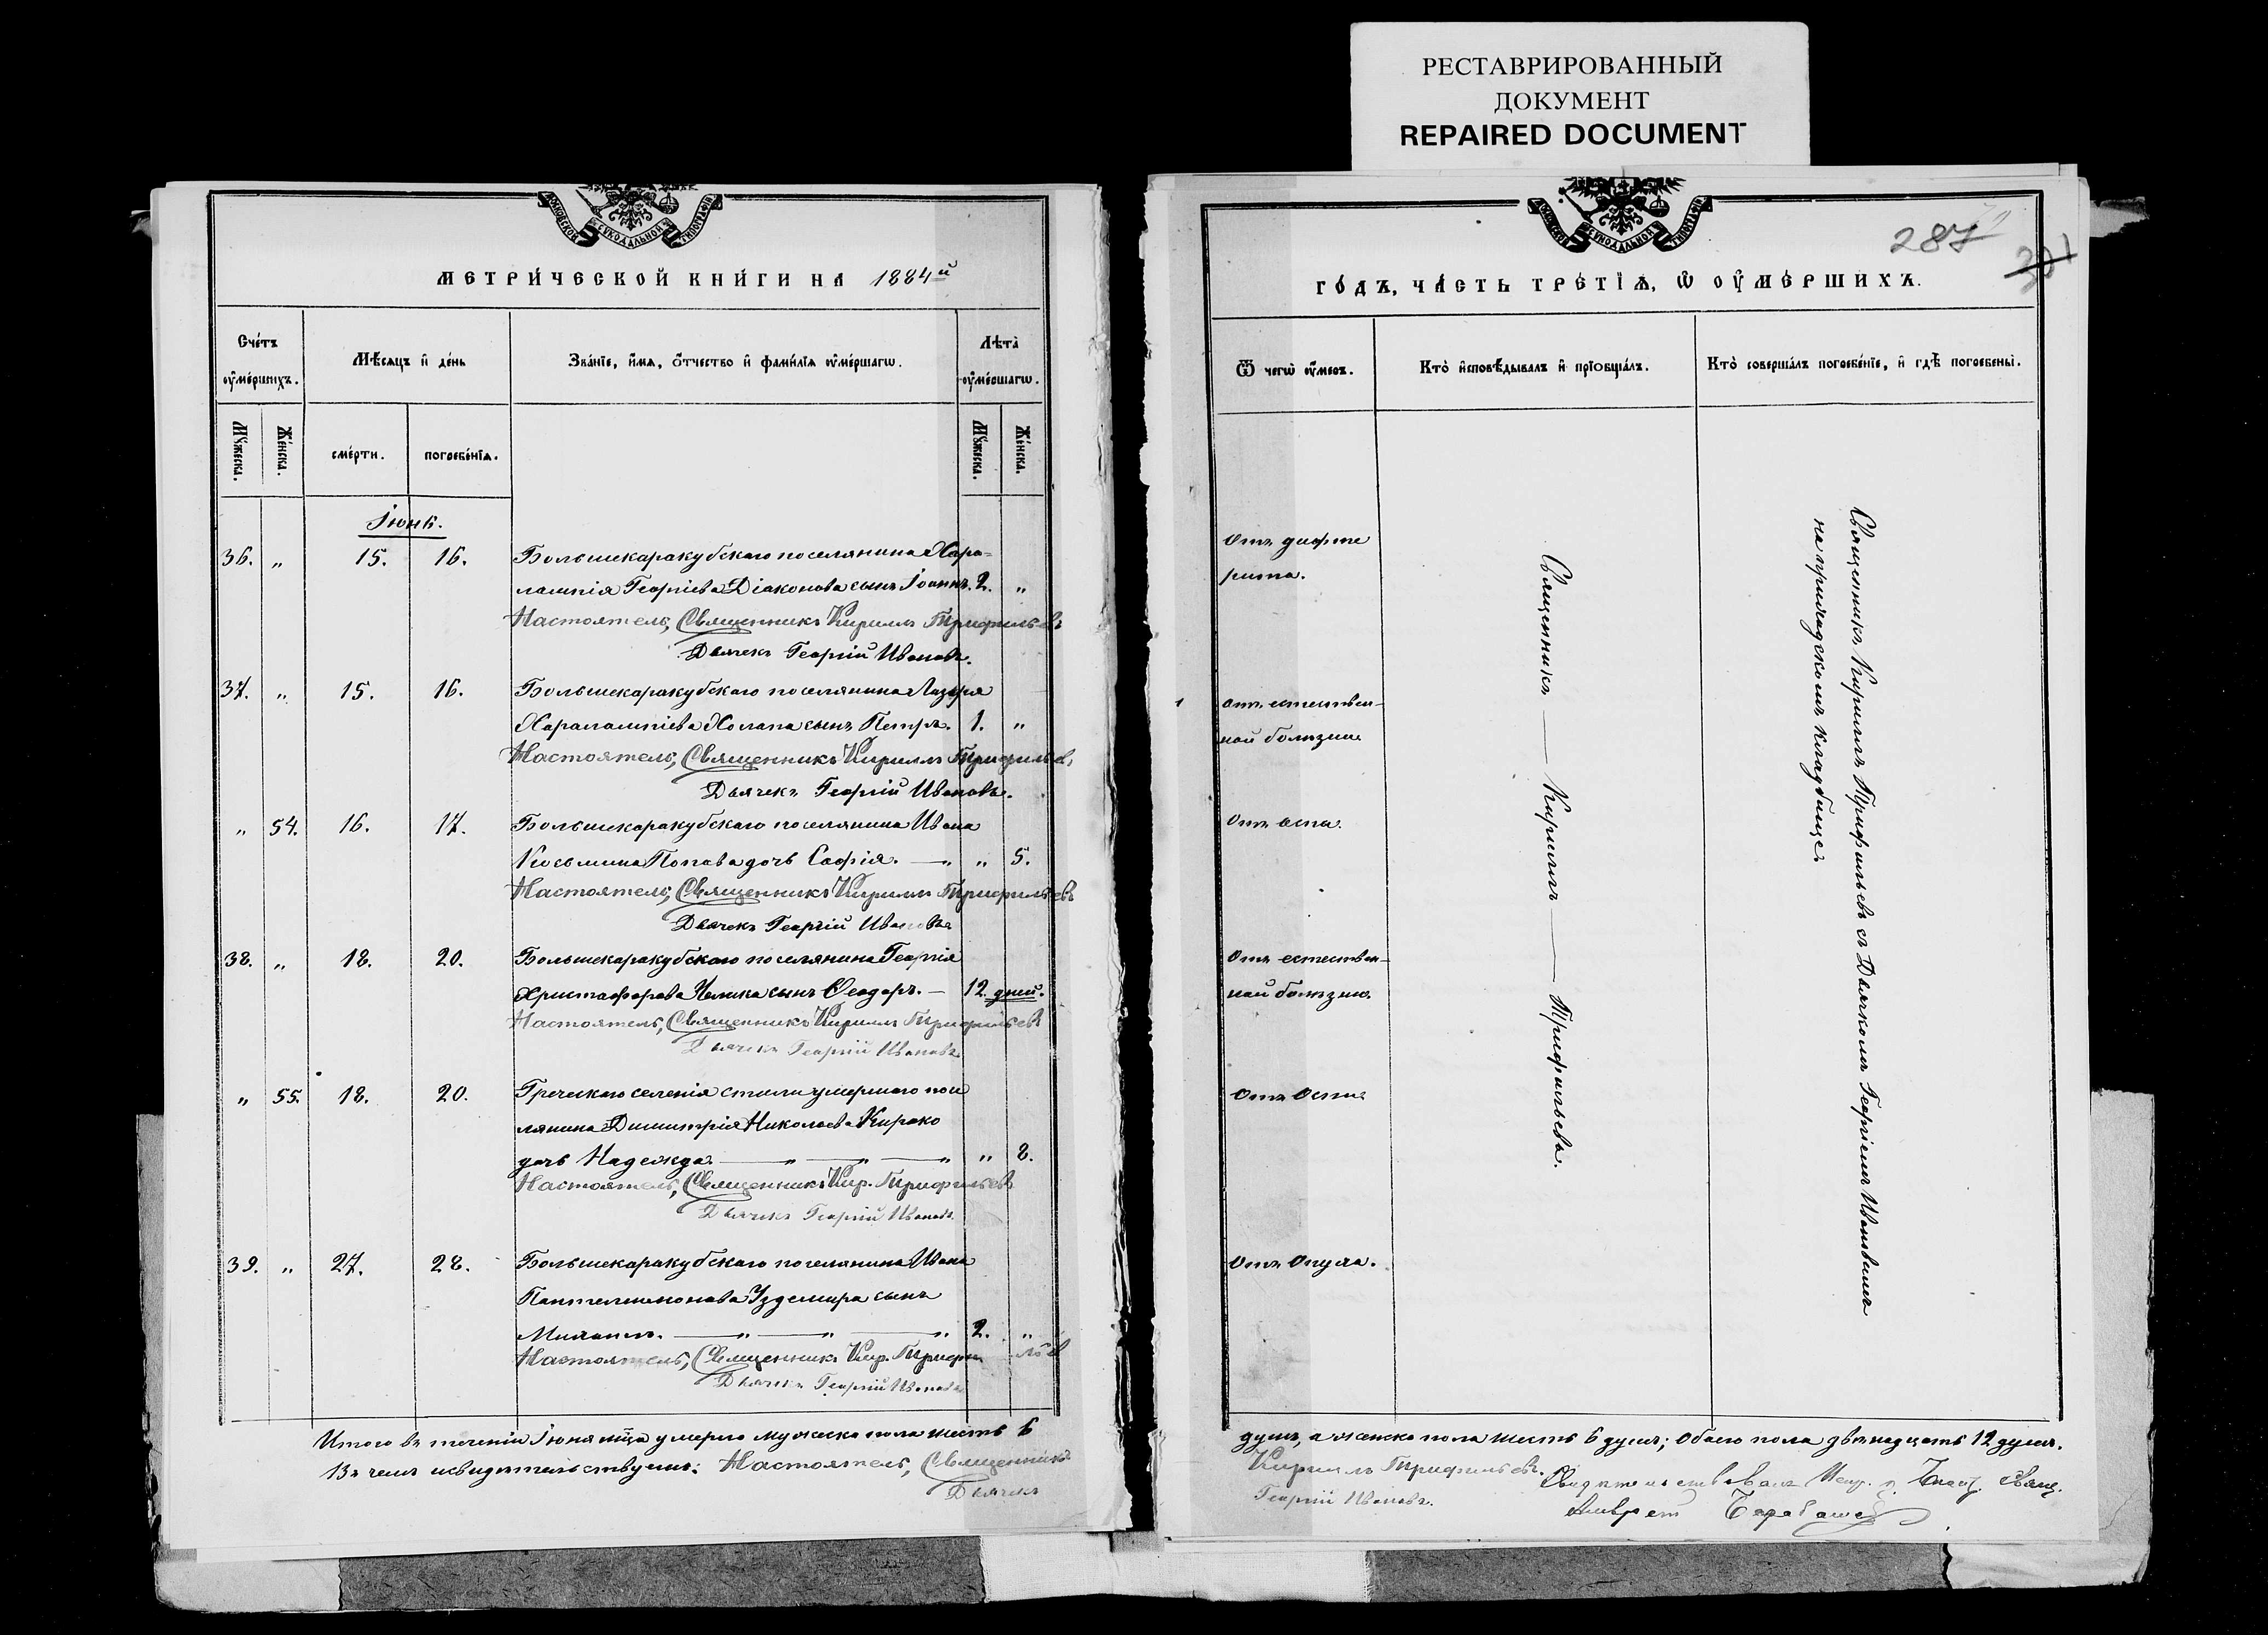 РЕСТАВРИРОВАННЫЙ
ДОКУМЕНТ
REPAIRED DOCUMENT
МЕТРИ́ЧЕСКОЙ КНИ́ГИ НА 1884й
Сче́тъ ᲂу҆ме́ршихъ.
Мѣ́сяцъ и҆ де́нь
Зва́нїе, и҆́мѧ, ѻ҆́тчество и҆ фами́лїѧ ᲂу҆ме́ршагѡ.
Лѣта̀ ᲂу҆ме́ршагѡ.
Мꙋ́жеска.
Же́нска.
сме́рти.
погребе́нїѧ.
Мꙋ́жеска.
Же́нска.
Іюнь.
36. „ 15. 16. Большекаракубскаго поселянина Хара-
лампія Георгіева Діаконова сынъ Іоаннъ. 2. „
Настоятель, Священникъ Кириллъ Трифильевъ
Дьячекъ Георгій Ивановъ.
37. „ 15. 16. Большекаракубскаго поселянина Лазаря
Харалампіева Холапа сынъ Петръ. 1. „
Настоятель, Священникъ Кириллъ Трифильев,
Дьячекъ Георгій Ивановъ.
„ 54. 16. 17. Большекаракубскаго поселянина Ивана
Косьмина Попова дочь Софія. — „ „ 5.
Настоятель, Священникъ Кириллъ Трифильевъ
Дьячекъ Георгій Ивановъ
38. „ 18. 20. Большекаракубскаго поселянина Георгія
Христофорова сынъ Ѳеодоръ. — 12. дней.
Настоятель, Священникъ Кириллъ Трифильевъ
Дьячекъ Георгій Ивановъ
„ 55. 18. 20. Греческаго селенія Стили умершаго посе
лянина Димитрія Николаева Кирако
дочь Надежда. — „ — „ — „ „ 8.
Настоятель, Священникъ Кир. Трифильевъ
Дьячекъ Георгій Ивановъ.
39. „ 27. 28. Большекаракубскаго поселянина Ивана
Пантелеимонова Уздемира сынъ
Михаилъ. — „ — „ — „ 2. „
Настоятель, Священникъ Кир. Трифильев
Дьячекъ Георгій Ивановъ
Итого въ теченіи Іюня мца умерло мужеска пола шесть 6
Въ чемъ и свидѣтельствуемъ: Настоятель, Священникъ
Дьячекъ
287
ГО́ДЪ, ЧА́СТЬ ТРЕ́ТЇѦ, Ѡ҆ ОУ҆МЕ́РШИХЪ.
Ѿ чегѡ̀ ᲂу҆́меръ.
Кто̀ и҆сповѣ́дывалъ и҆ прїобща́лъ.
Кто̀ соверша́лъ погребе́нїе, и҆ гдѣ̀ погребены̀.
Отъ дифте
рита.
отъ естествен-
ной болѣзни
Отъ оспы.
Отъ естествен-
ной болѣзни
Отъ оспы
Отъ опуха.
Священникъ — Кириллъ — Трифильевъ.
Священникъ Кириллъ Трифильевъ съ Дьячкомъ Георгіемъ Ивановымъ
на приходскомъ кладбище.
душъ, а женска пола шесть 6 душъ; обоего пола двѣнадцать 12 душъ.
Кириллъ Трифильевъ.
Георгій Ивановъ.
Свидѣтельствовалъ Свящ.